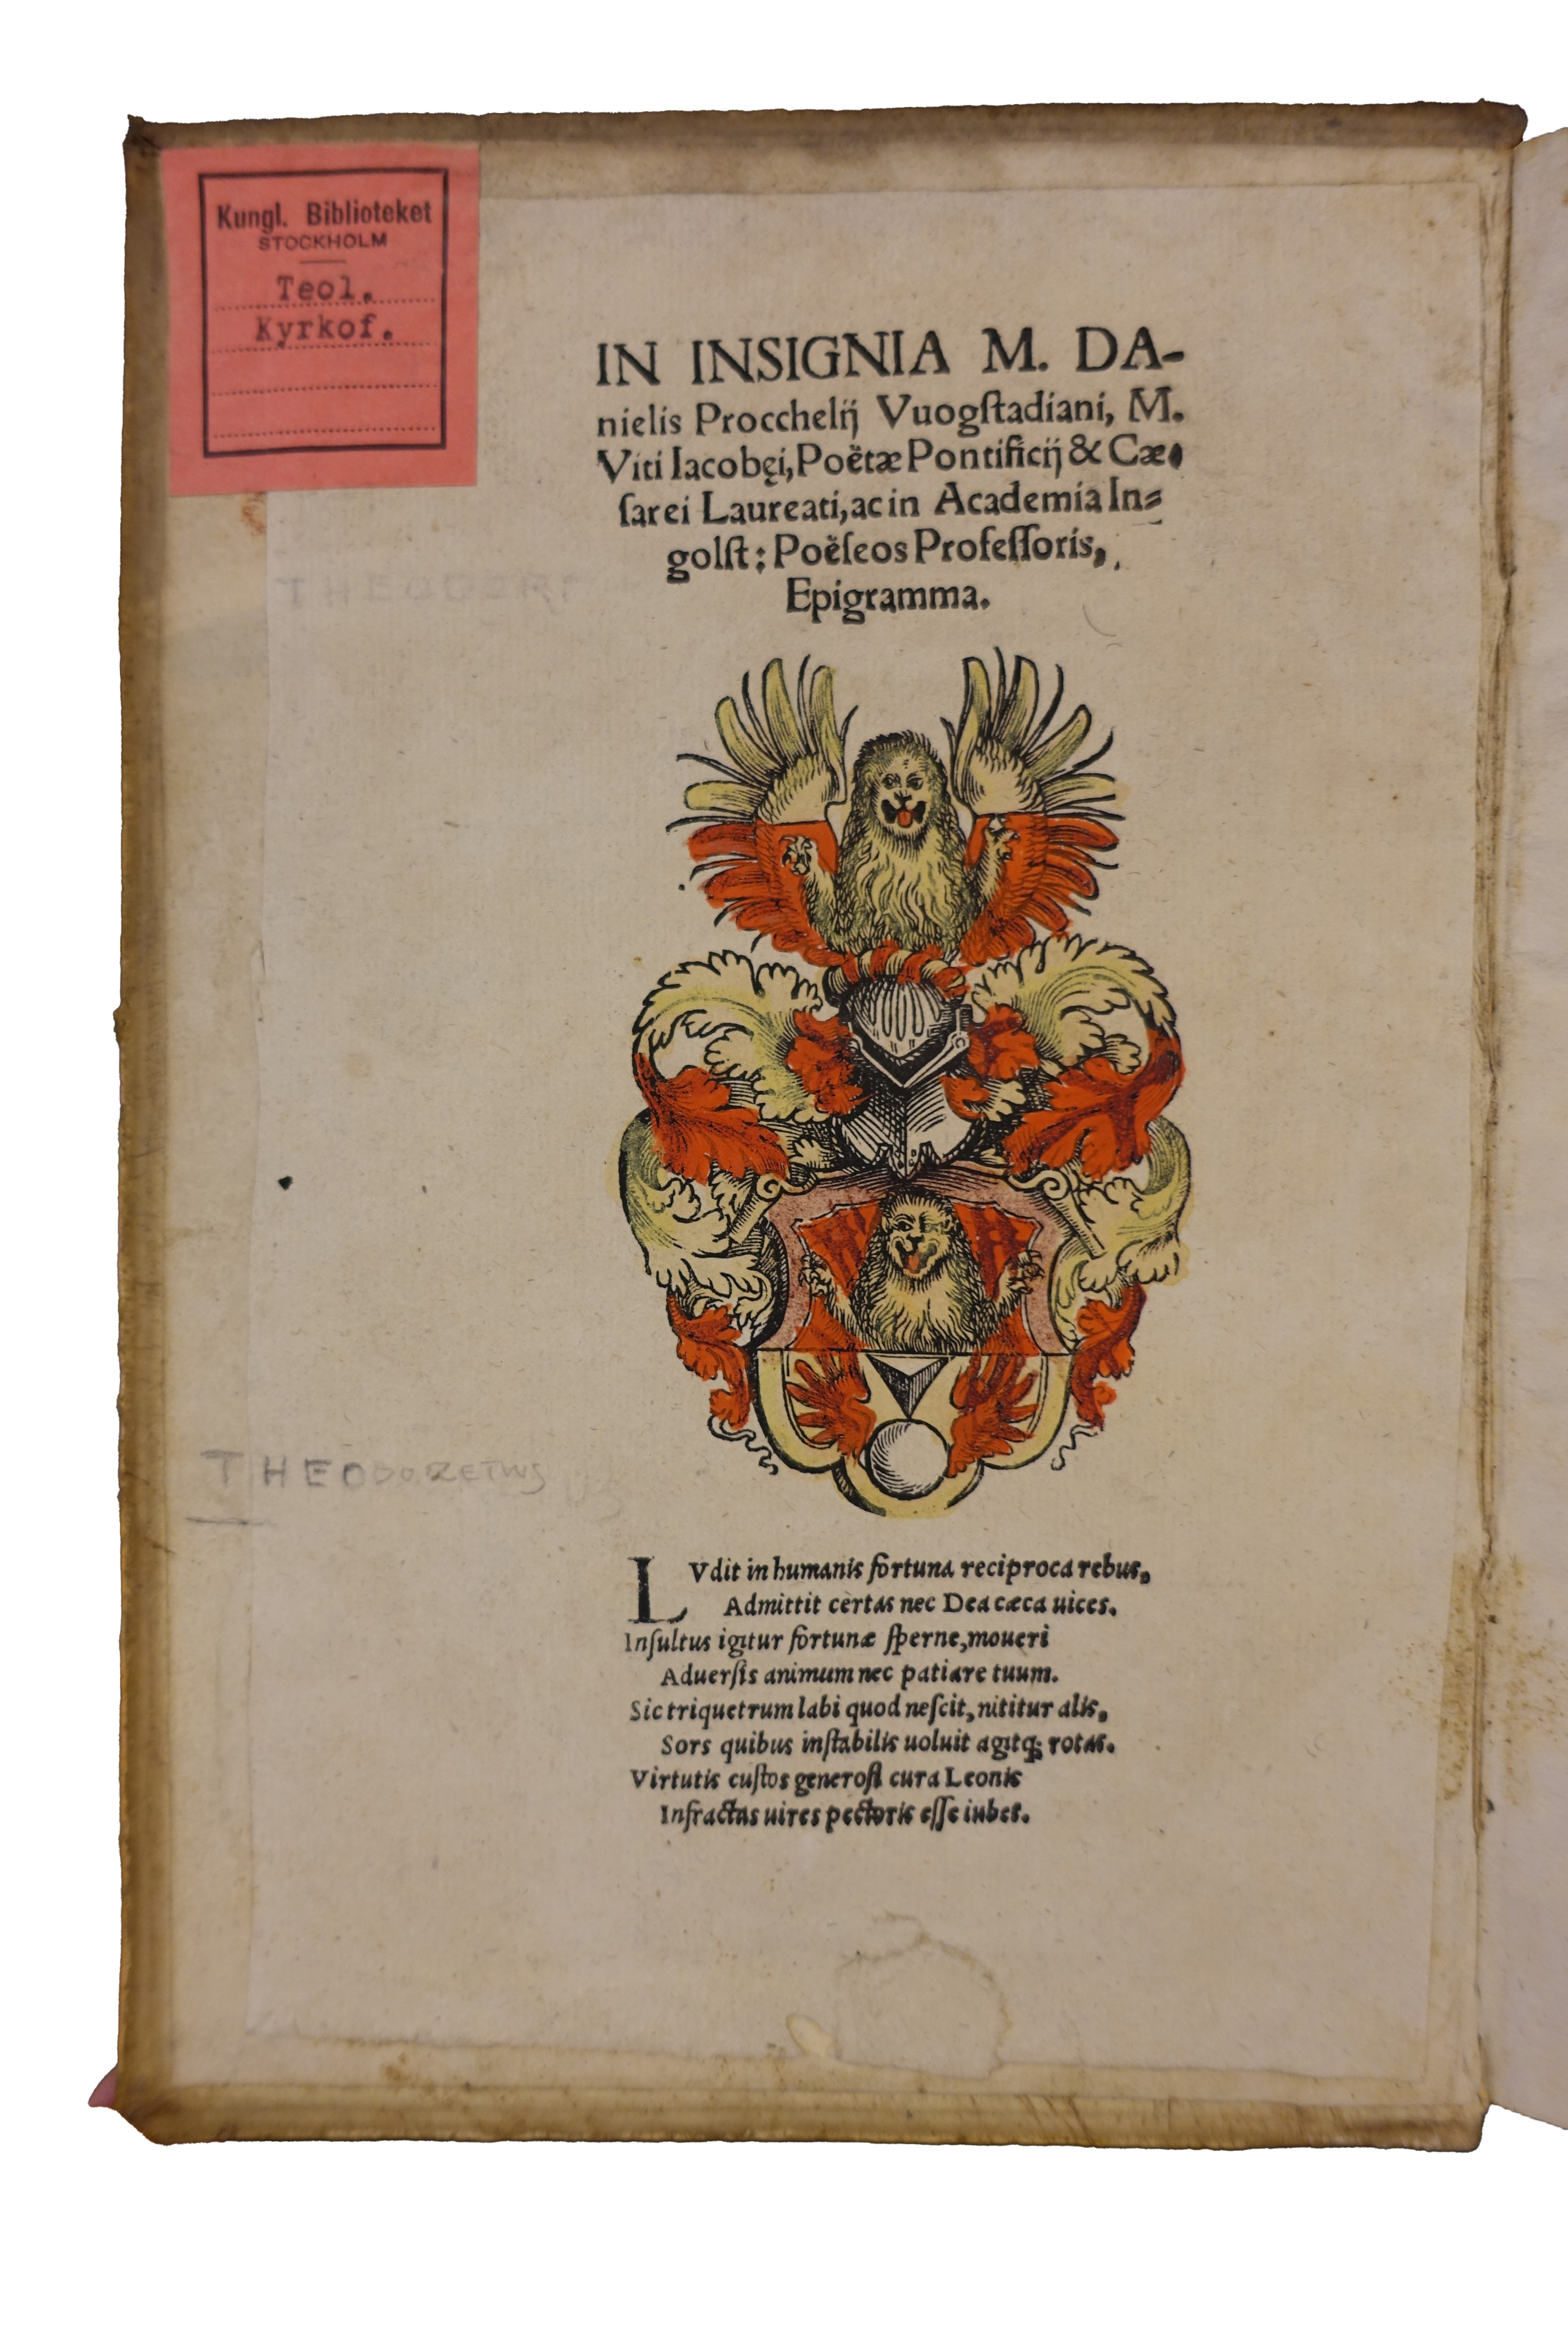 Kungl. Biblioteket
STOCKHOLM
Teol.
Kyrkof.
IN INSIGNIA M. DA-
nielis Procchelij Vuogſtadiani, M.
Viti Iacobęi, Poëtæ Pontificij & Cæ-
ſarei Laureati, ac in Academia In-
golſt: Poëſeos Profeſſoris,
Epigramma.
THEODORET
THEODORETUS
LVdit in humanis fortuna reciproca rebus,
Admittit certas nec Dea cæca uices.
Inſultus igitur fortunæ ſperne, moueri
Aduerſis animum nec patiare tuum.
Sic triquetrum labi quod neſcit, nititur alis,
Sors quibus inſtabilis uoluit agitq; rotas.
Virtutis cuſtos generoſi cura Leonis
Infractas uires pectoris eſſe iubet.